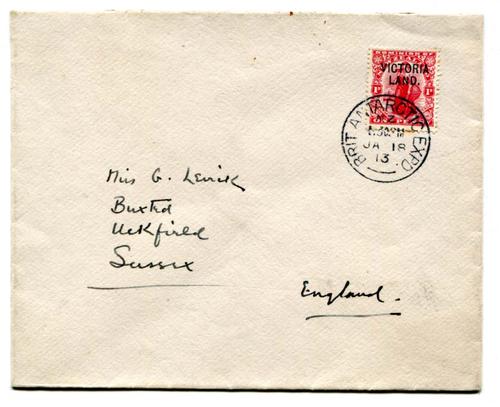 VICTORIA
LAND.
1D 1D
BRIT ANTARCTIC EXPD
N.Z.
JA 18
13.
Miss G. Levick
Buxted
Uckfield
Sussex
England.